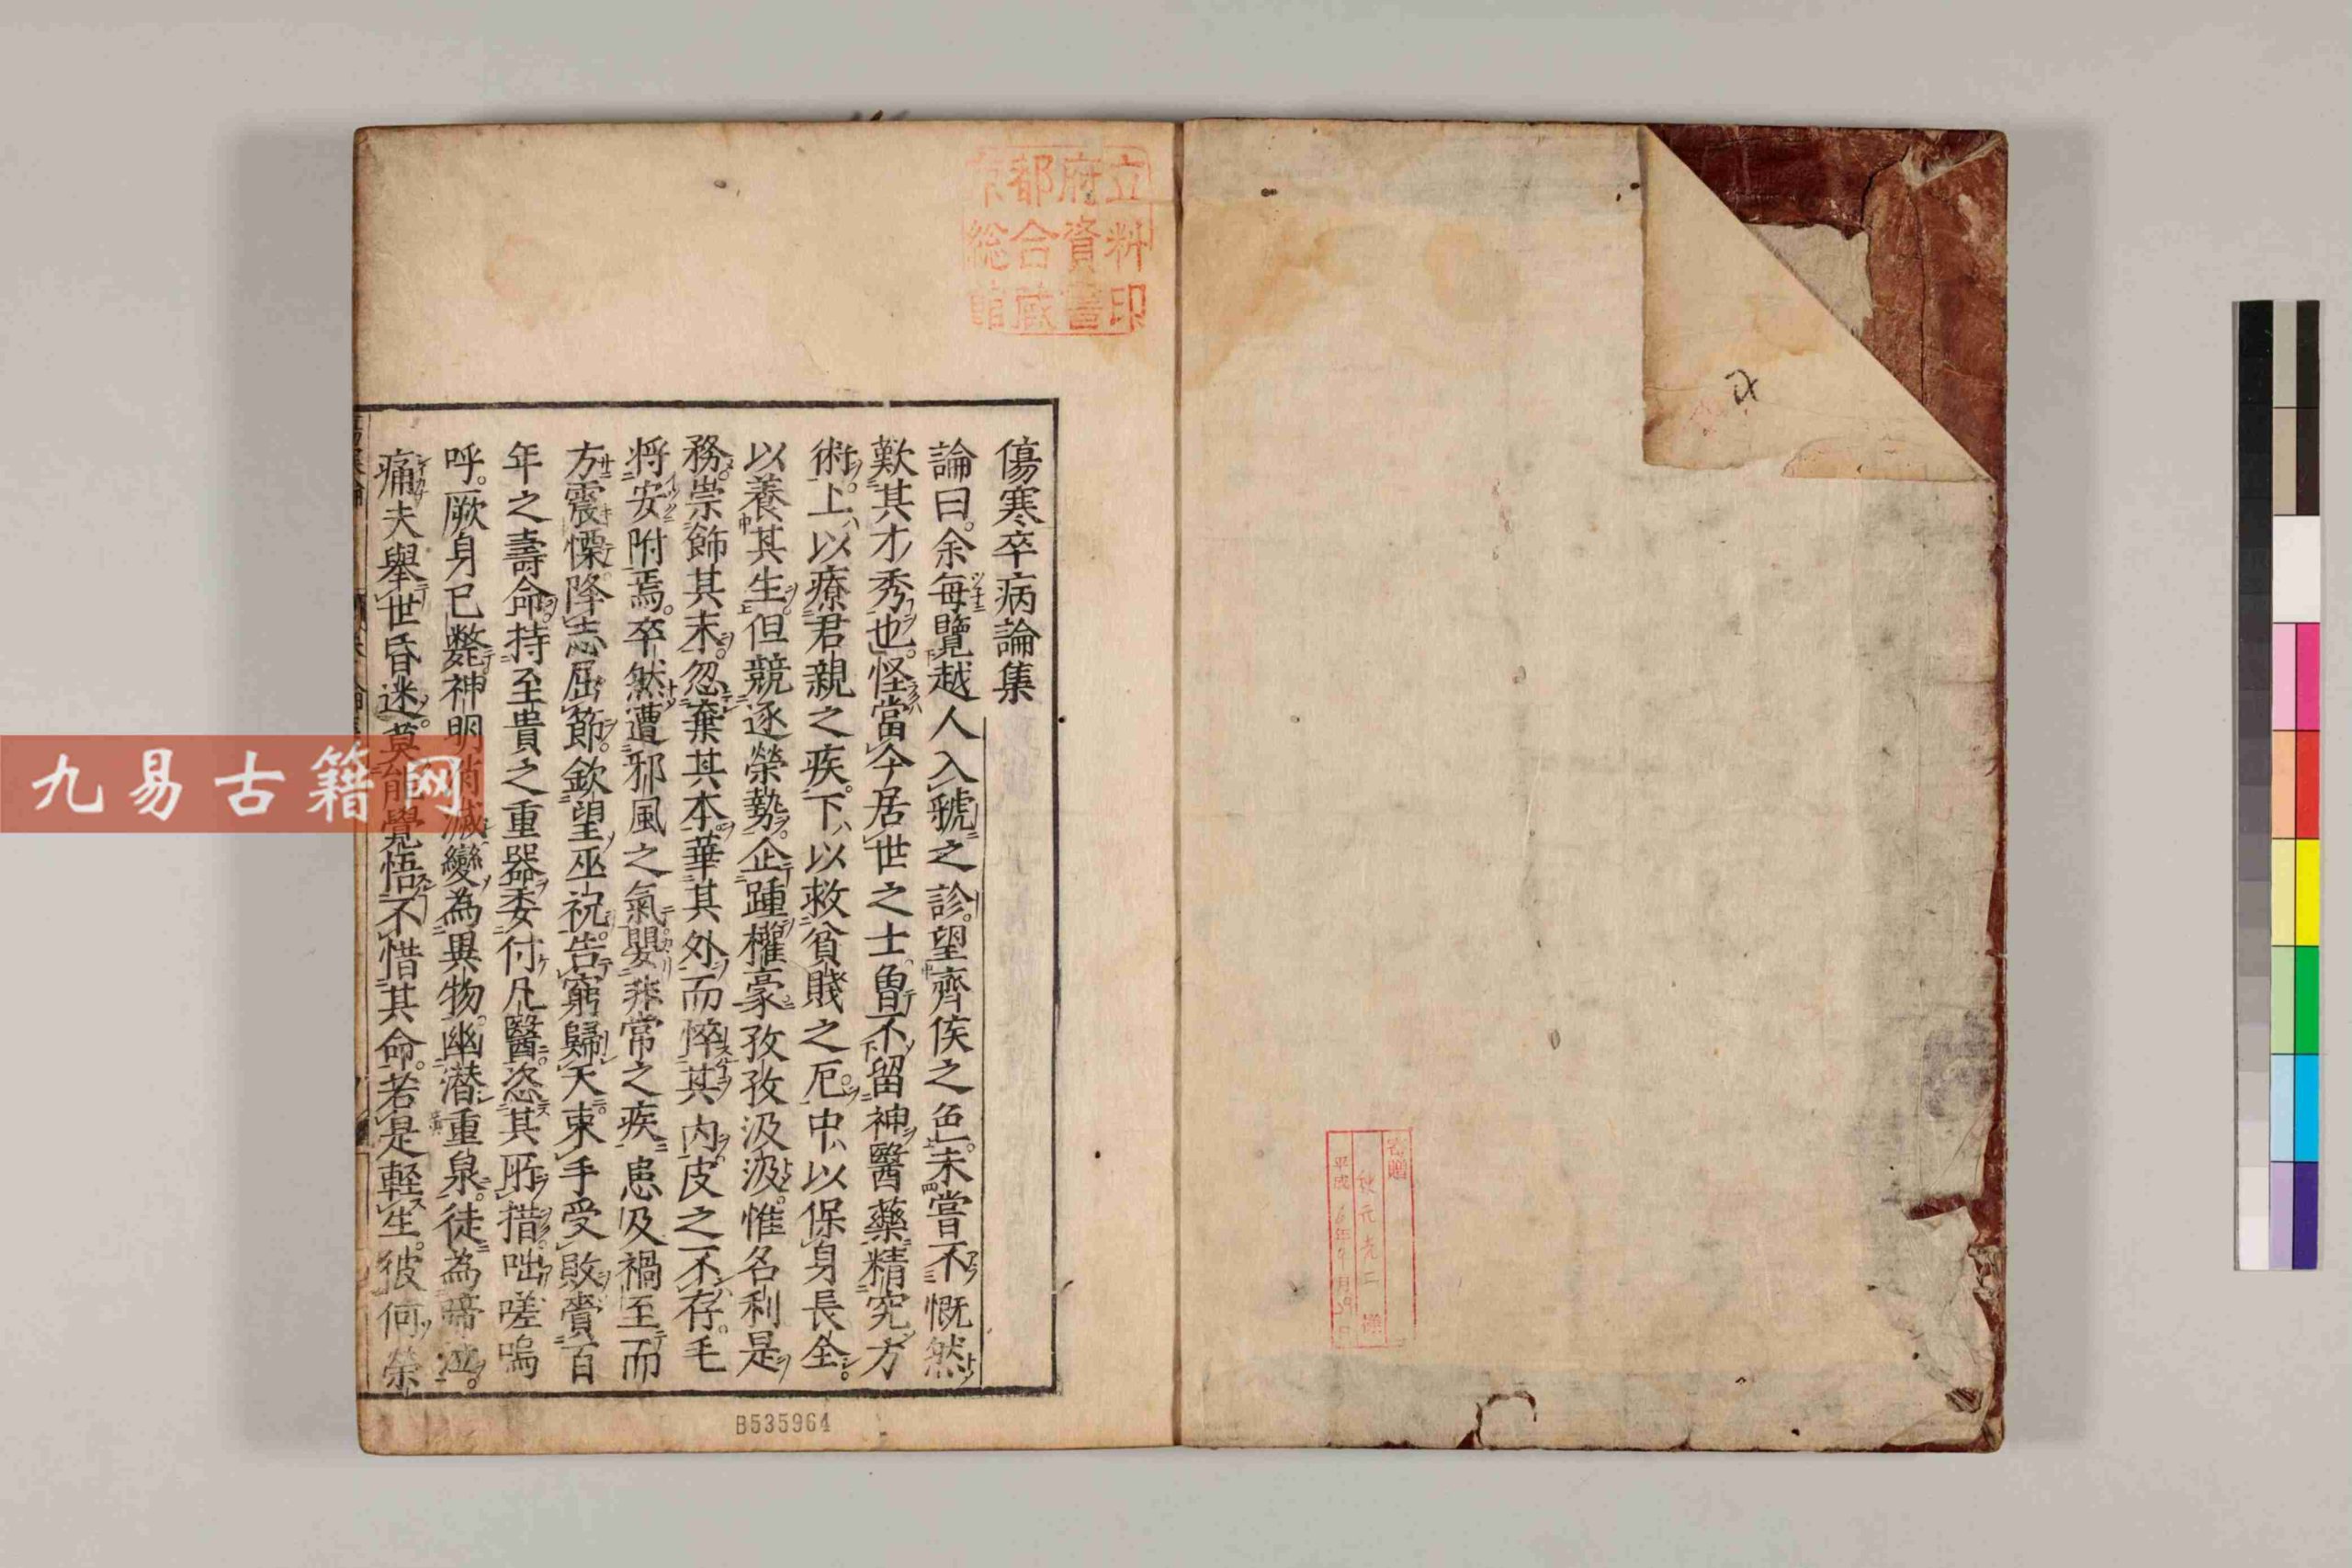 寄贈
平成6年9月29日
傷寒卒病論集
論曰。余每覽越人入虢之診。望齊侯之色。未嘗不慨然
歎其才秀也。怪當今居世之士。曾不留神醫藥精究方
術。上以療君親之疾。下以救貧賤之厄。中以保身長全。
以養其生。但競逐榮勢。企踵權豪。孜孜汲汲。惟名利是
務。崇飾其末。忽棄其本。華其外而悴其内。皮之不存。毛
将安附焉。卒然遭邪風之氣。嬰非常之疾。患及禍至而
方震慄。降志屈節。欽望巫祝。告窮歸天。束手受敗。賫百
年之壽命。持至貴之重器。委付凡醫。恣其所措。咄嗟嗚
呼。厥身已斃。神明消滅。變為異物。幽潜重泉。徒為啼泣。
痛夫舉世昏迷。莫能覺悟。不惜其命。若是輕生。彼何榮
京都府立
総合資料
館蔵書印
B535964
九易古籍网